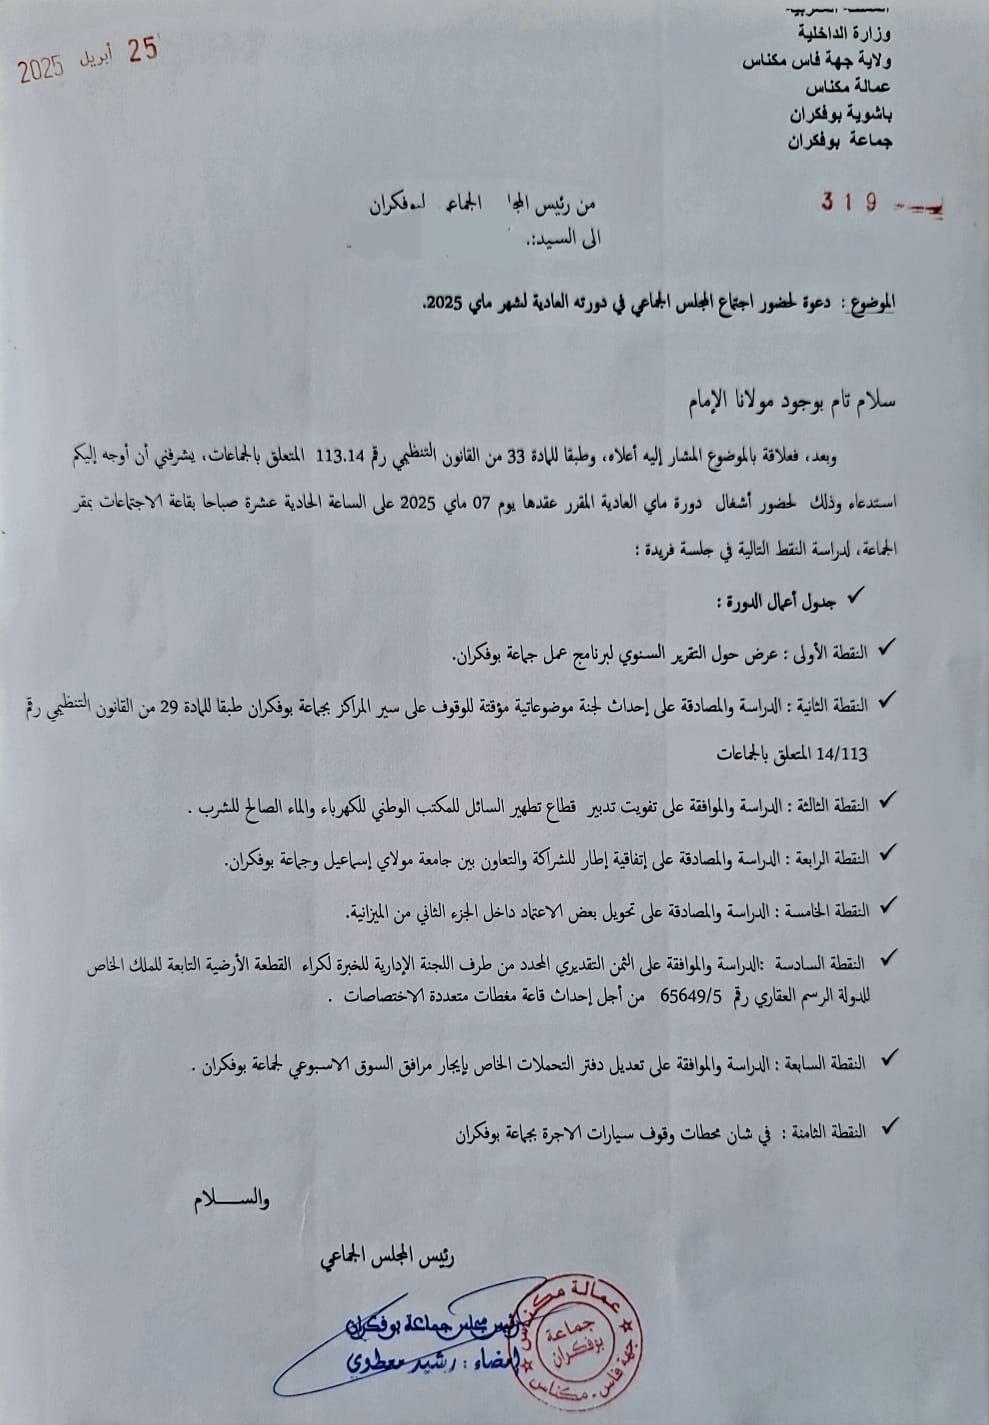 المملكة المغربية
وزارة الداخلية
ولاية جهة فاس مكناس
عمالة مكناس
باشوية بوفكران
جماعة بوفكران
25 أبريل 2025
319
من رئيس الجماعي لبوفكران
الى السيد:.
الموضوع : دعوة لحضور اجتماع المجلس الجماعي في دورته العادية لشهر ماي 2025.
سلام تام بوجود مولانا الإمام
وبعد، فعلاقة بالموضوع المشار إليه أعلاه، وطبقا للمادة 33 من القانون التنظيمي رقم 113.14 المتعلق بالجماعات، يشرفني أن أوجه إليكم
استدعاء وذلك لحضور أشغال دورة ماي العادية المقرر عقدها يوم 07 ماي 2025 على الساعة الحادية عشرة صباحا بقاعة الاجتماعات بمقر
الجماعة، لدراسة النقط التالية في جلسة فريدة :
✓ جدول أعمال الدورة :
✓ النقطة الأولى : عرض حول التقرير السنوي لبرنامج عمل جماعة بوفكران.
✓ النقطة الثانية : الدراسة والمصادقة على إحداث لجنة موضوعاتية مؤقتة للوقوف على سير المراكز بجماعة بوفكران طبقا للمادة 29 من القانون التنظيمي رقم
14/113 المتعلق بالجماعات
✓ النقطة الثالثة : الدراسة والموافقة على تفويت تدبير قطاع تطهير السائل للمكتب الوطني للكهرباء والماء الصالح للشرب .
✓ النقطة الرابعة : الدراسة والمصادقة على إتفاقية إطار للشراكة والتعاون بين جامعة مولاي إسماعيل وجماعة بوفكران.
✓ النقطة الخامسة : الدراسة والمصادقة على تحويل بعض الاعتماد داخل الجزء الثاني من الميزانية.
✓ النقطة السادسة :الدراسة والموافقة على الثمن التقديري المحدد من طرف اللجنة الإدارية للخبرة لكراء القطعة الأرضية التابعة للملك الخاص
للدولة الرسم العقاري رقم 65649/5 من أجل إحداث قاعة مغطات متعددة الاختصاصات .
✓ النقطة السابعة : الدراسة والموافقة على تعديل دفتر التحملات الخاص بإيجار مرافق السوق الاسبوعي لجماعة بوفكران .
✓ النقطة الثامنة : في شان محطات وقوف سيارات الاجرة بجماعة بوفكران
والسـلام
رئيس المجلس الجماعي
رئيس مجلس جماعة بوفكران
إمضاء : رشيد معطوي
عمالة مكناس
جماعة
بوفكران
جهة فاس - مكناس